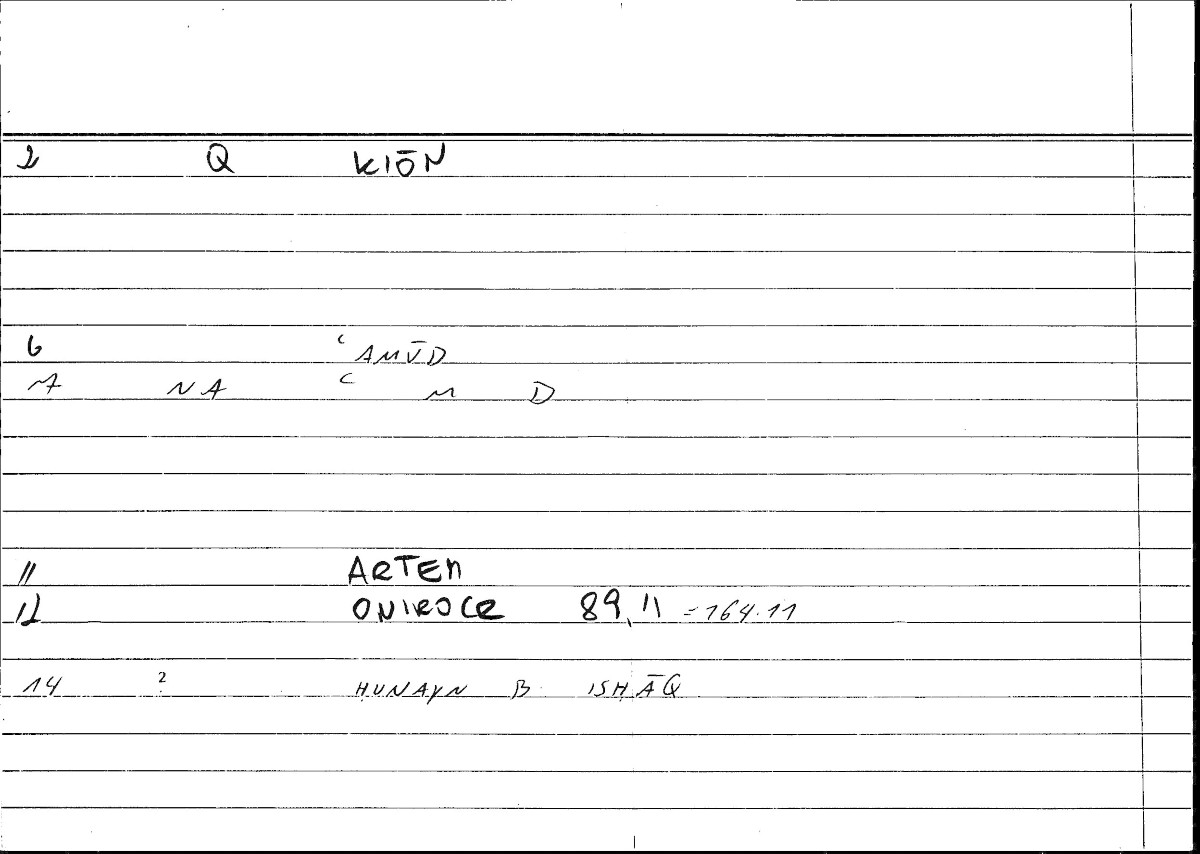 2 Q KIŌN
6 ʿAMŪD
7 NA ʿ M D
11 ARTEM
12 ONIROCR 89,11 = 164.11
14 2 ḤUNAYN B ISḤĀQ